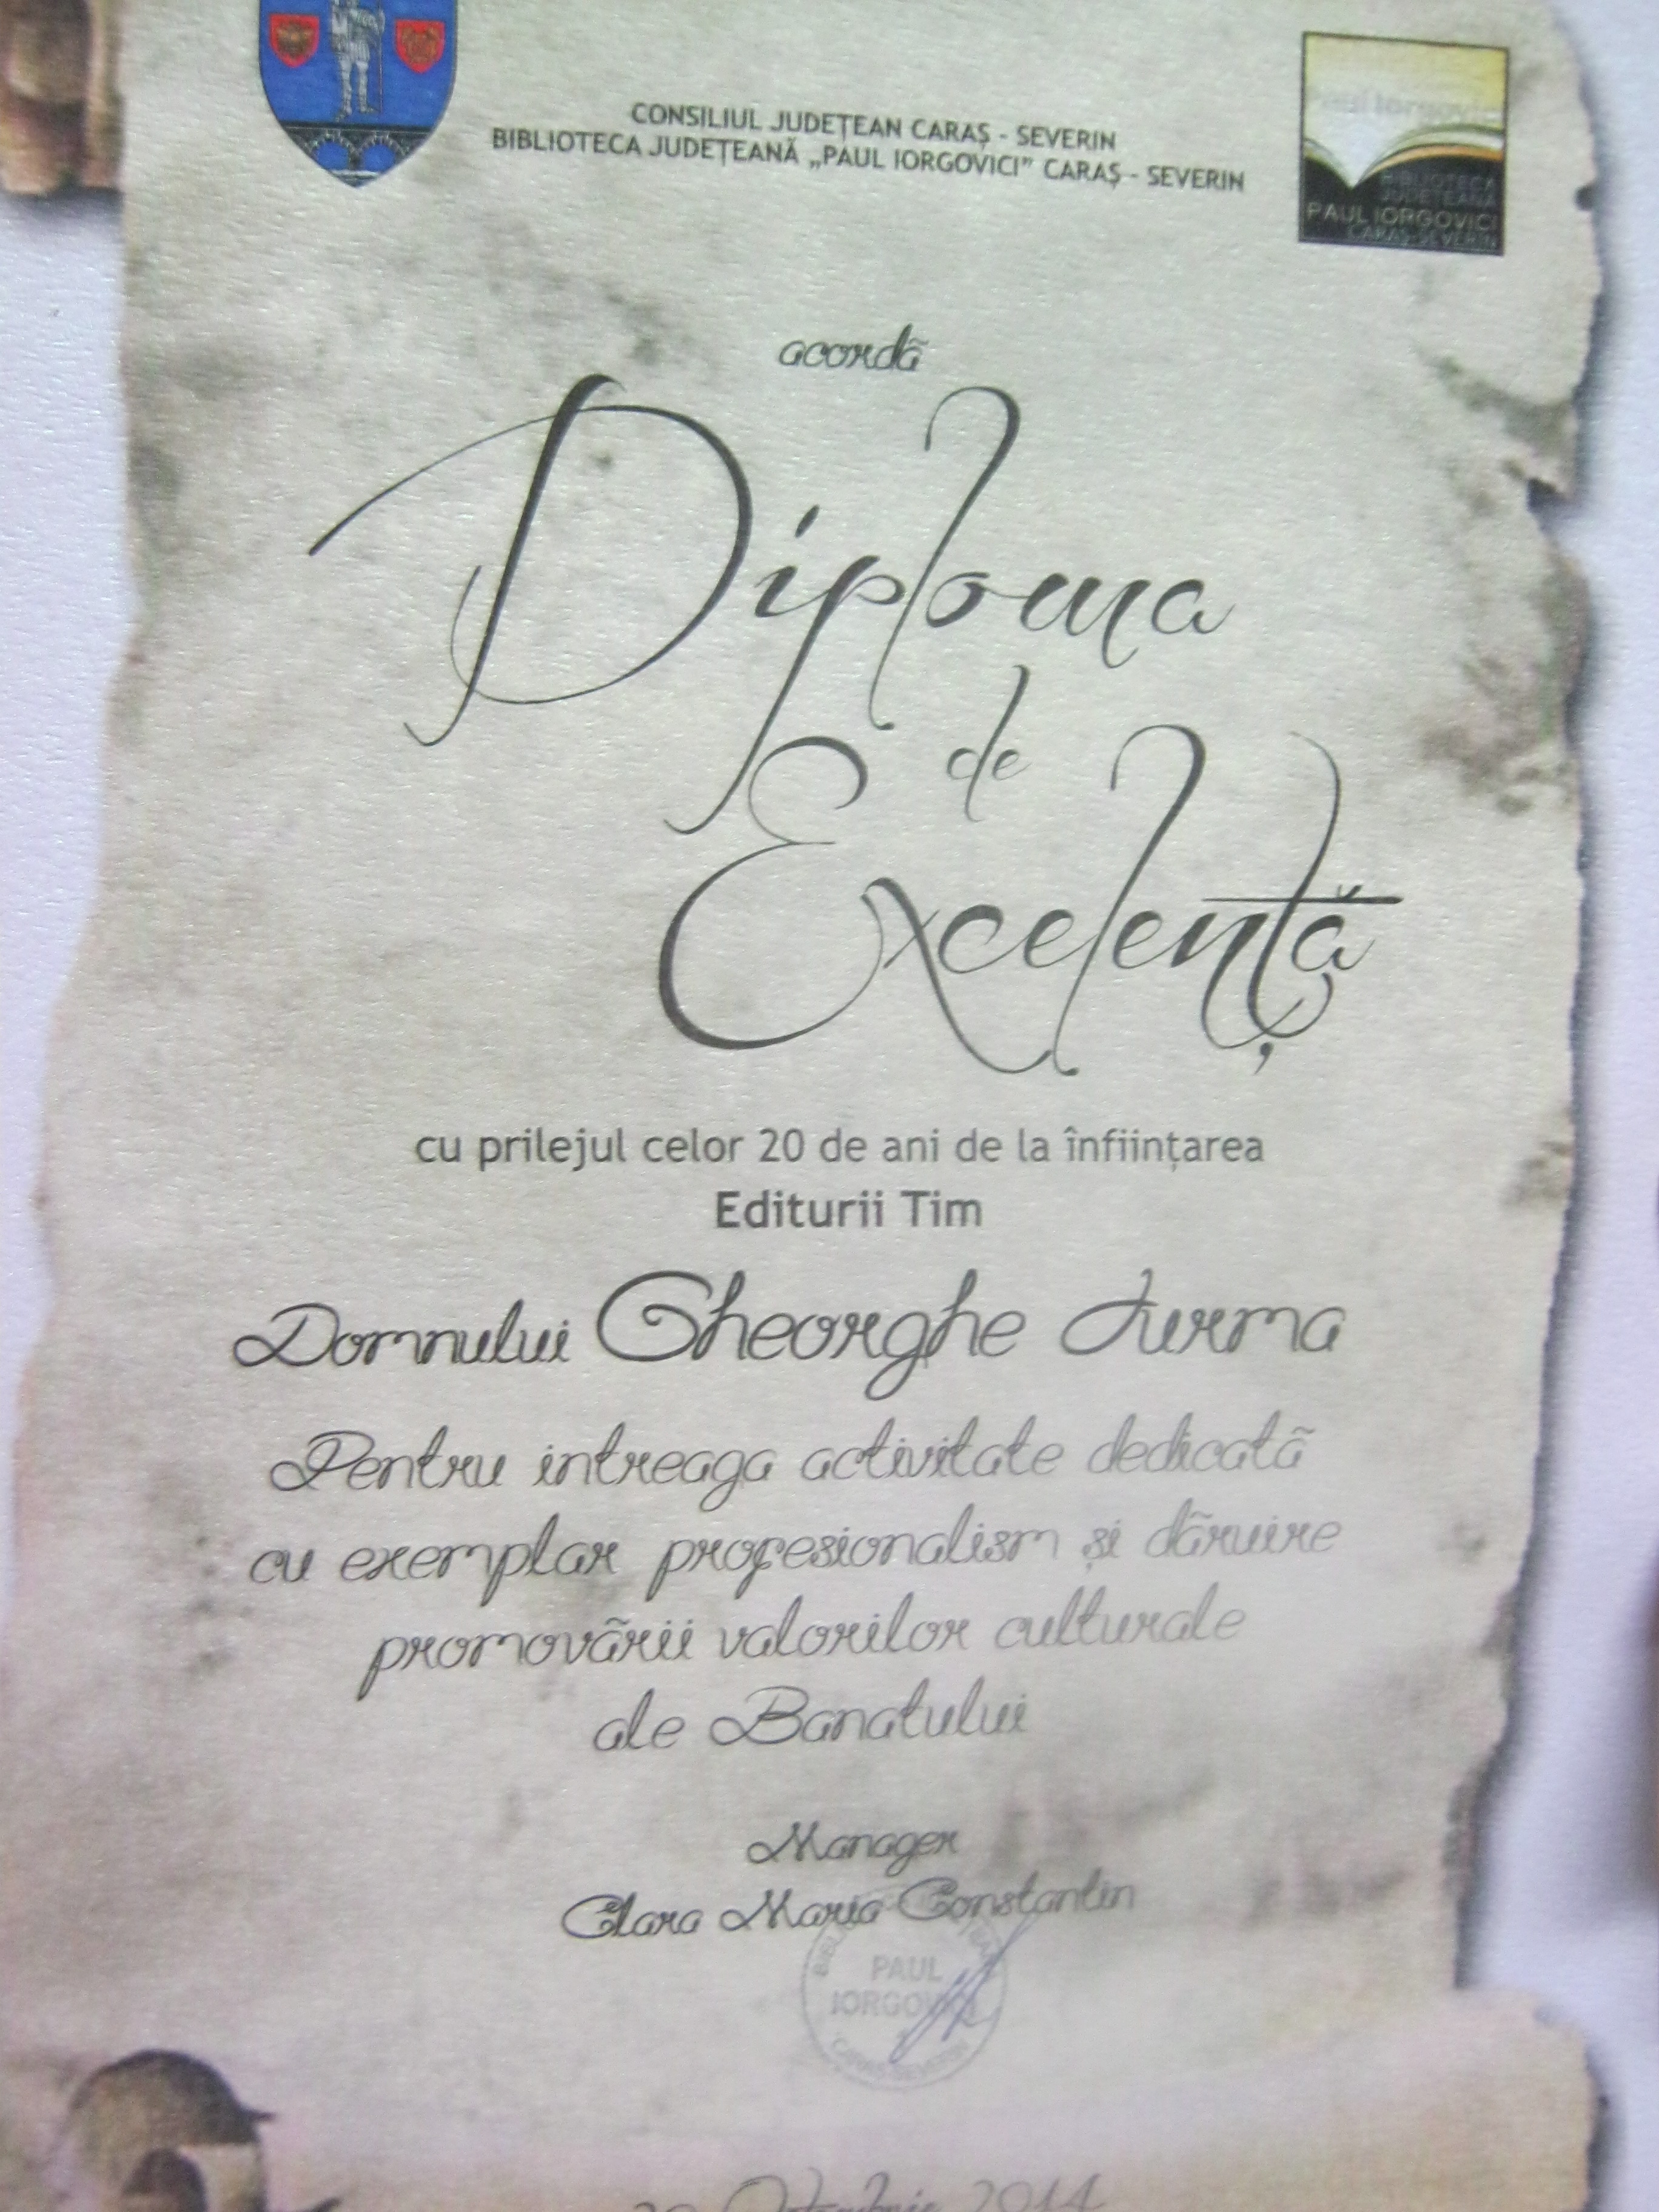 CONSILIUL JUDEȚEAN CARAȘ - SEVERIN
BIBLIOTECA JUDEȚEANĂ „PAUL IORGOVICI” CARAȘ - SEVERIN
BIBLIOTECA
JUDEȚEANĂ
PAUL IORGOVICI
CARAȘ-SEVERIN
acordă
Diploma
de
Excelență
cu prilejul celor 20 de ani de la înființarea
Editurii Tim
Domnului Gheorghe Jurma
Pentru intreaga activitate dedicată
cu exemplar profesionalism și dăruire
promovării valorilor culturale
ale Banatului
Manager
Clara Maria Constantin
PAUL
IORGOVICI
CARAȘ-SEVERIN
Octombrie 2014